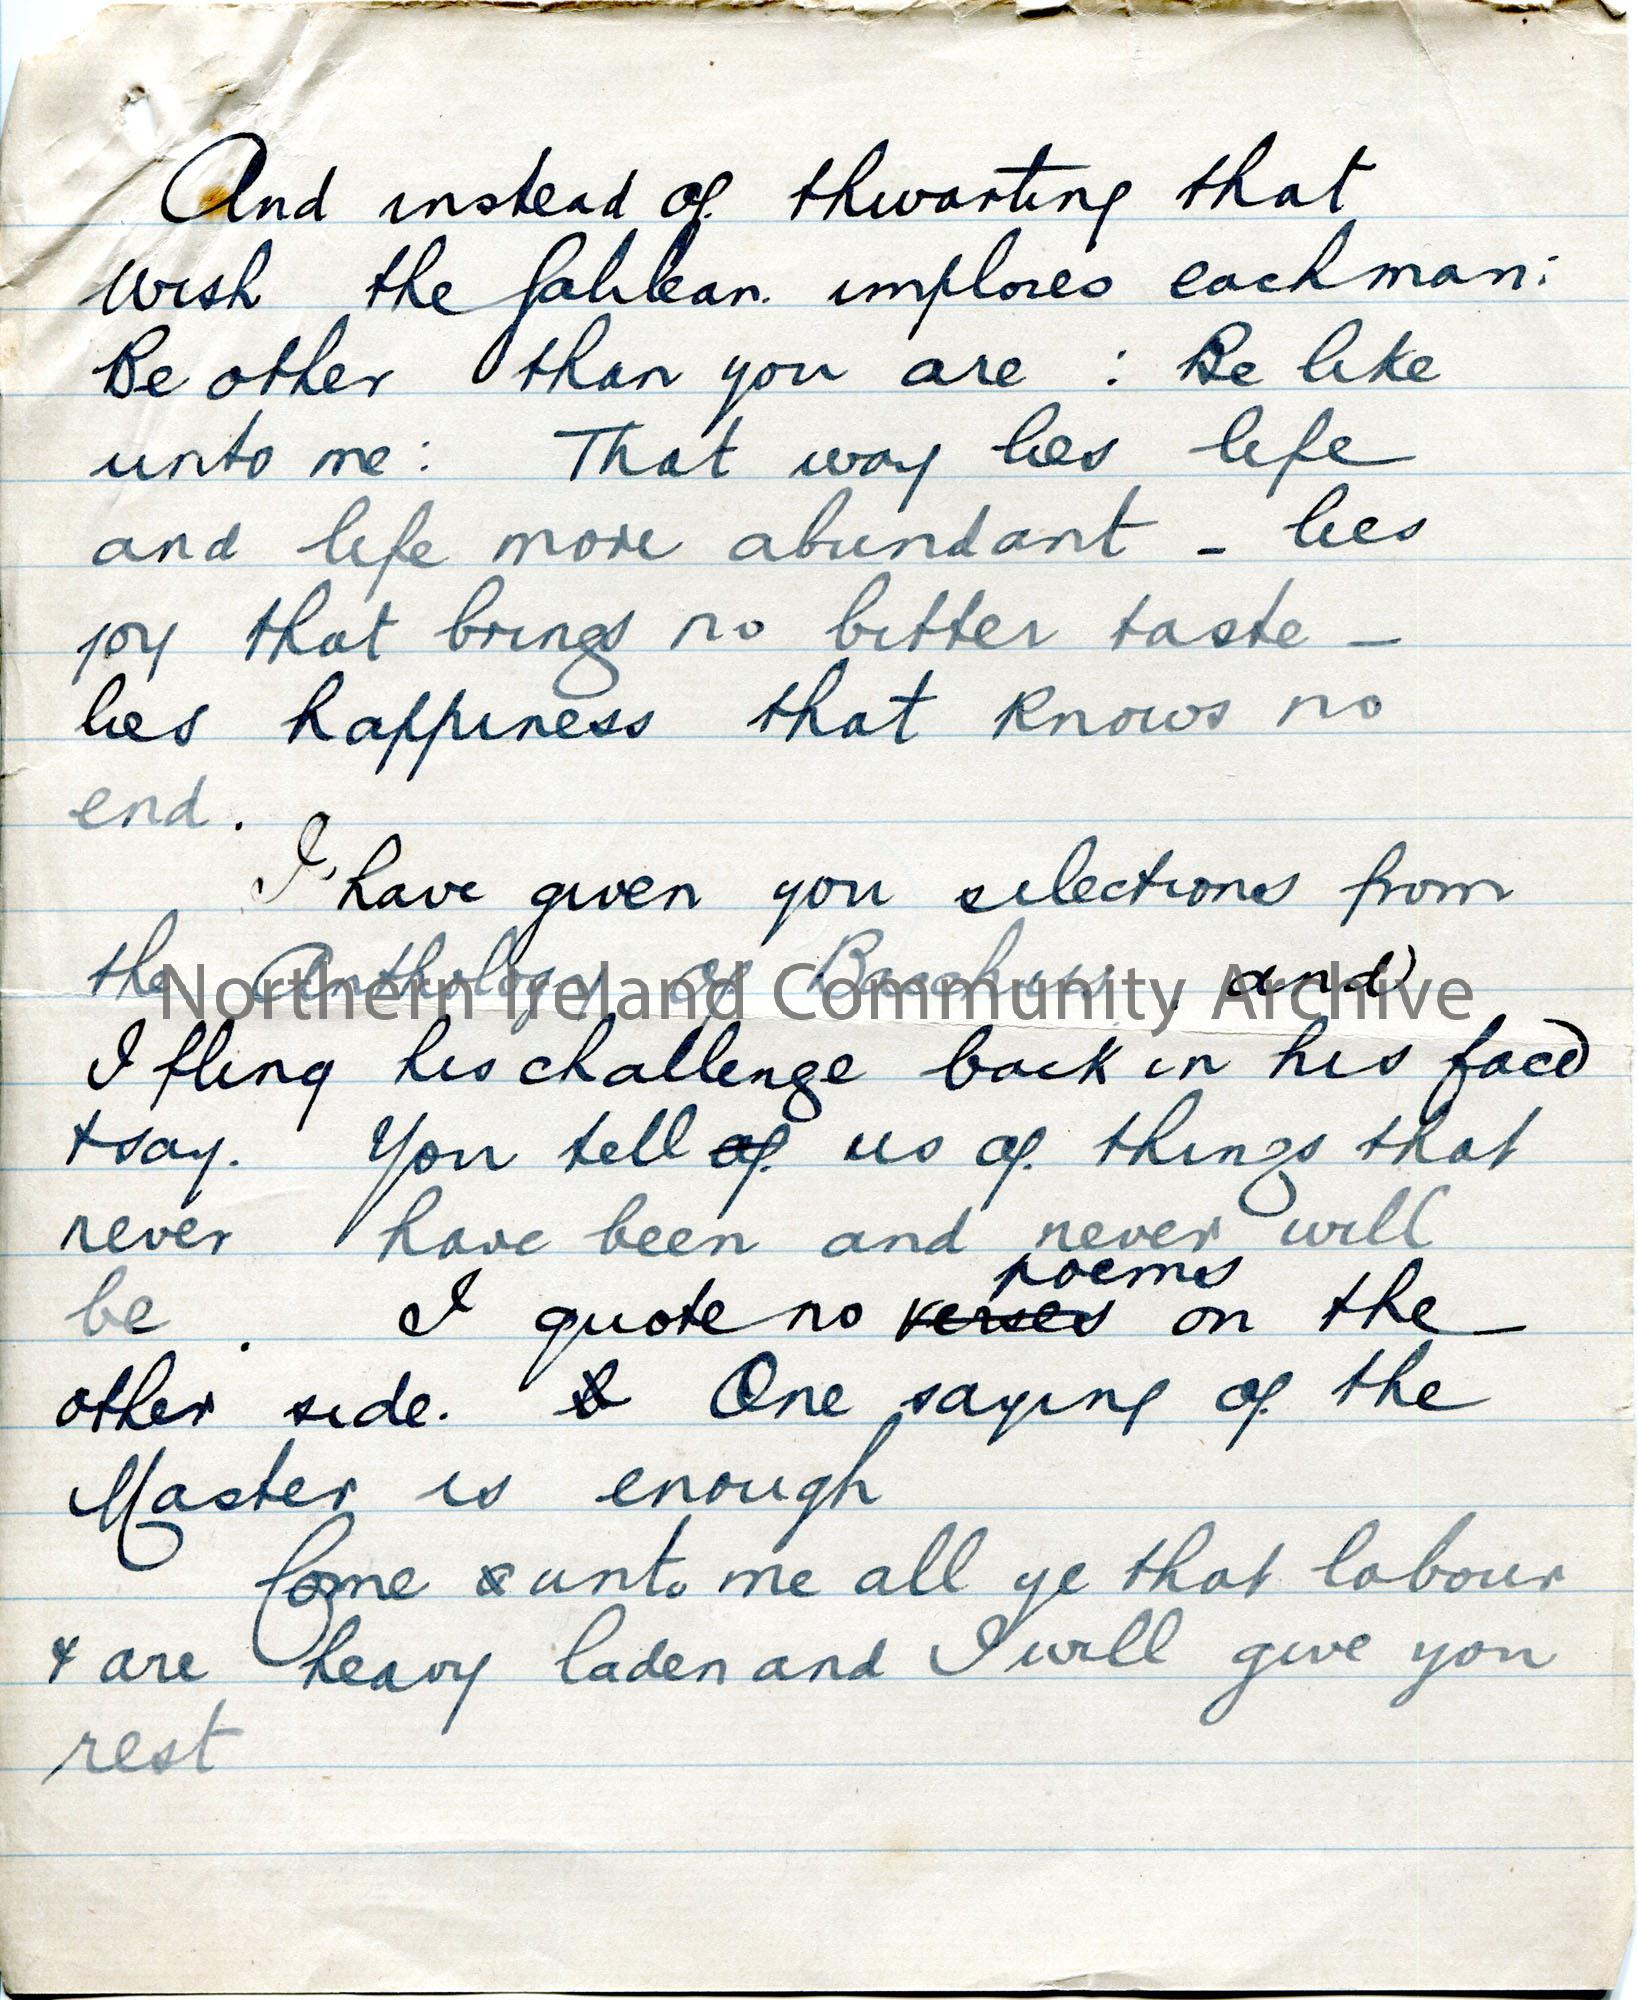 And instead of thwarting that
wish the Galilean implores each man:
Be other than you are : Be like
unto me: That way lies life
and life more abundant - lies
joy that brings no bitter taste -
lies happiness that knows no
end.
I have given you selections from
the Anthology of Bacchus, and
Northern Ireland Community Archive
I fling his challenge back in his face
& say. You tell of us of things that
never have been and never will
be. I quote no verses poems on the
other side. & One saying of the
Master is enough
Come unto me all ye that labour
& are heavy laden and I will give you
rest